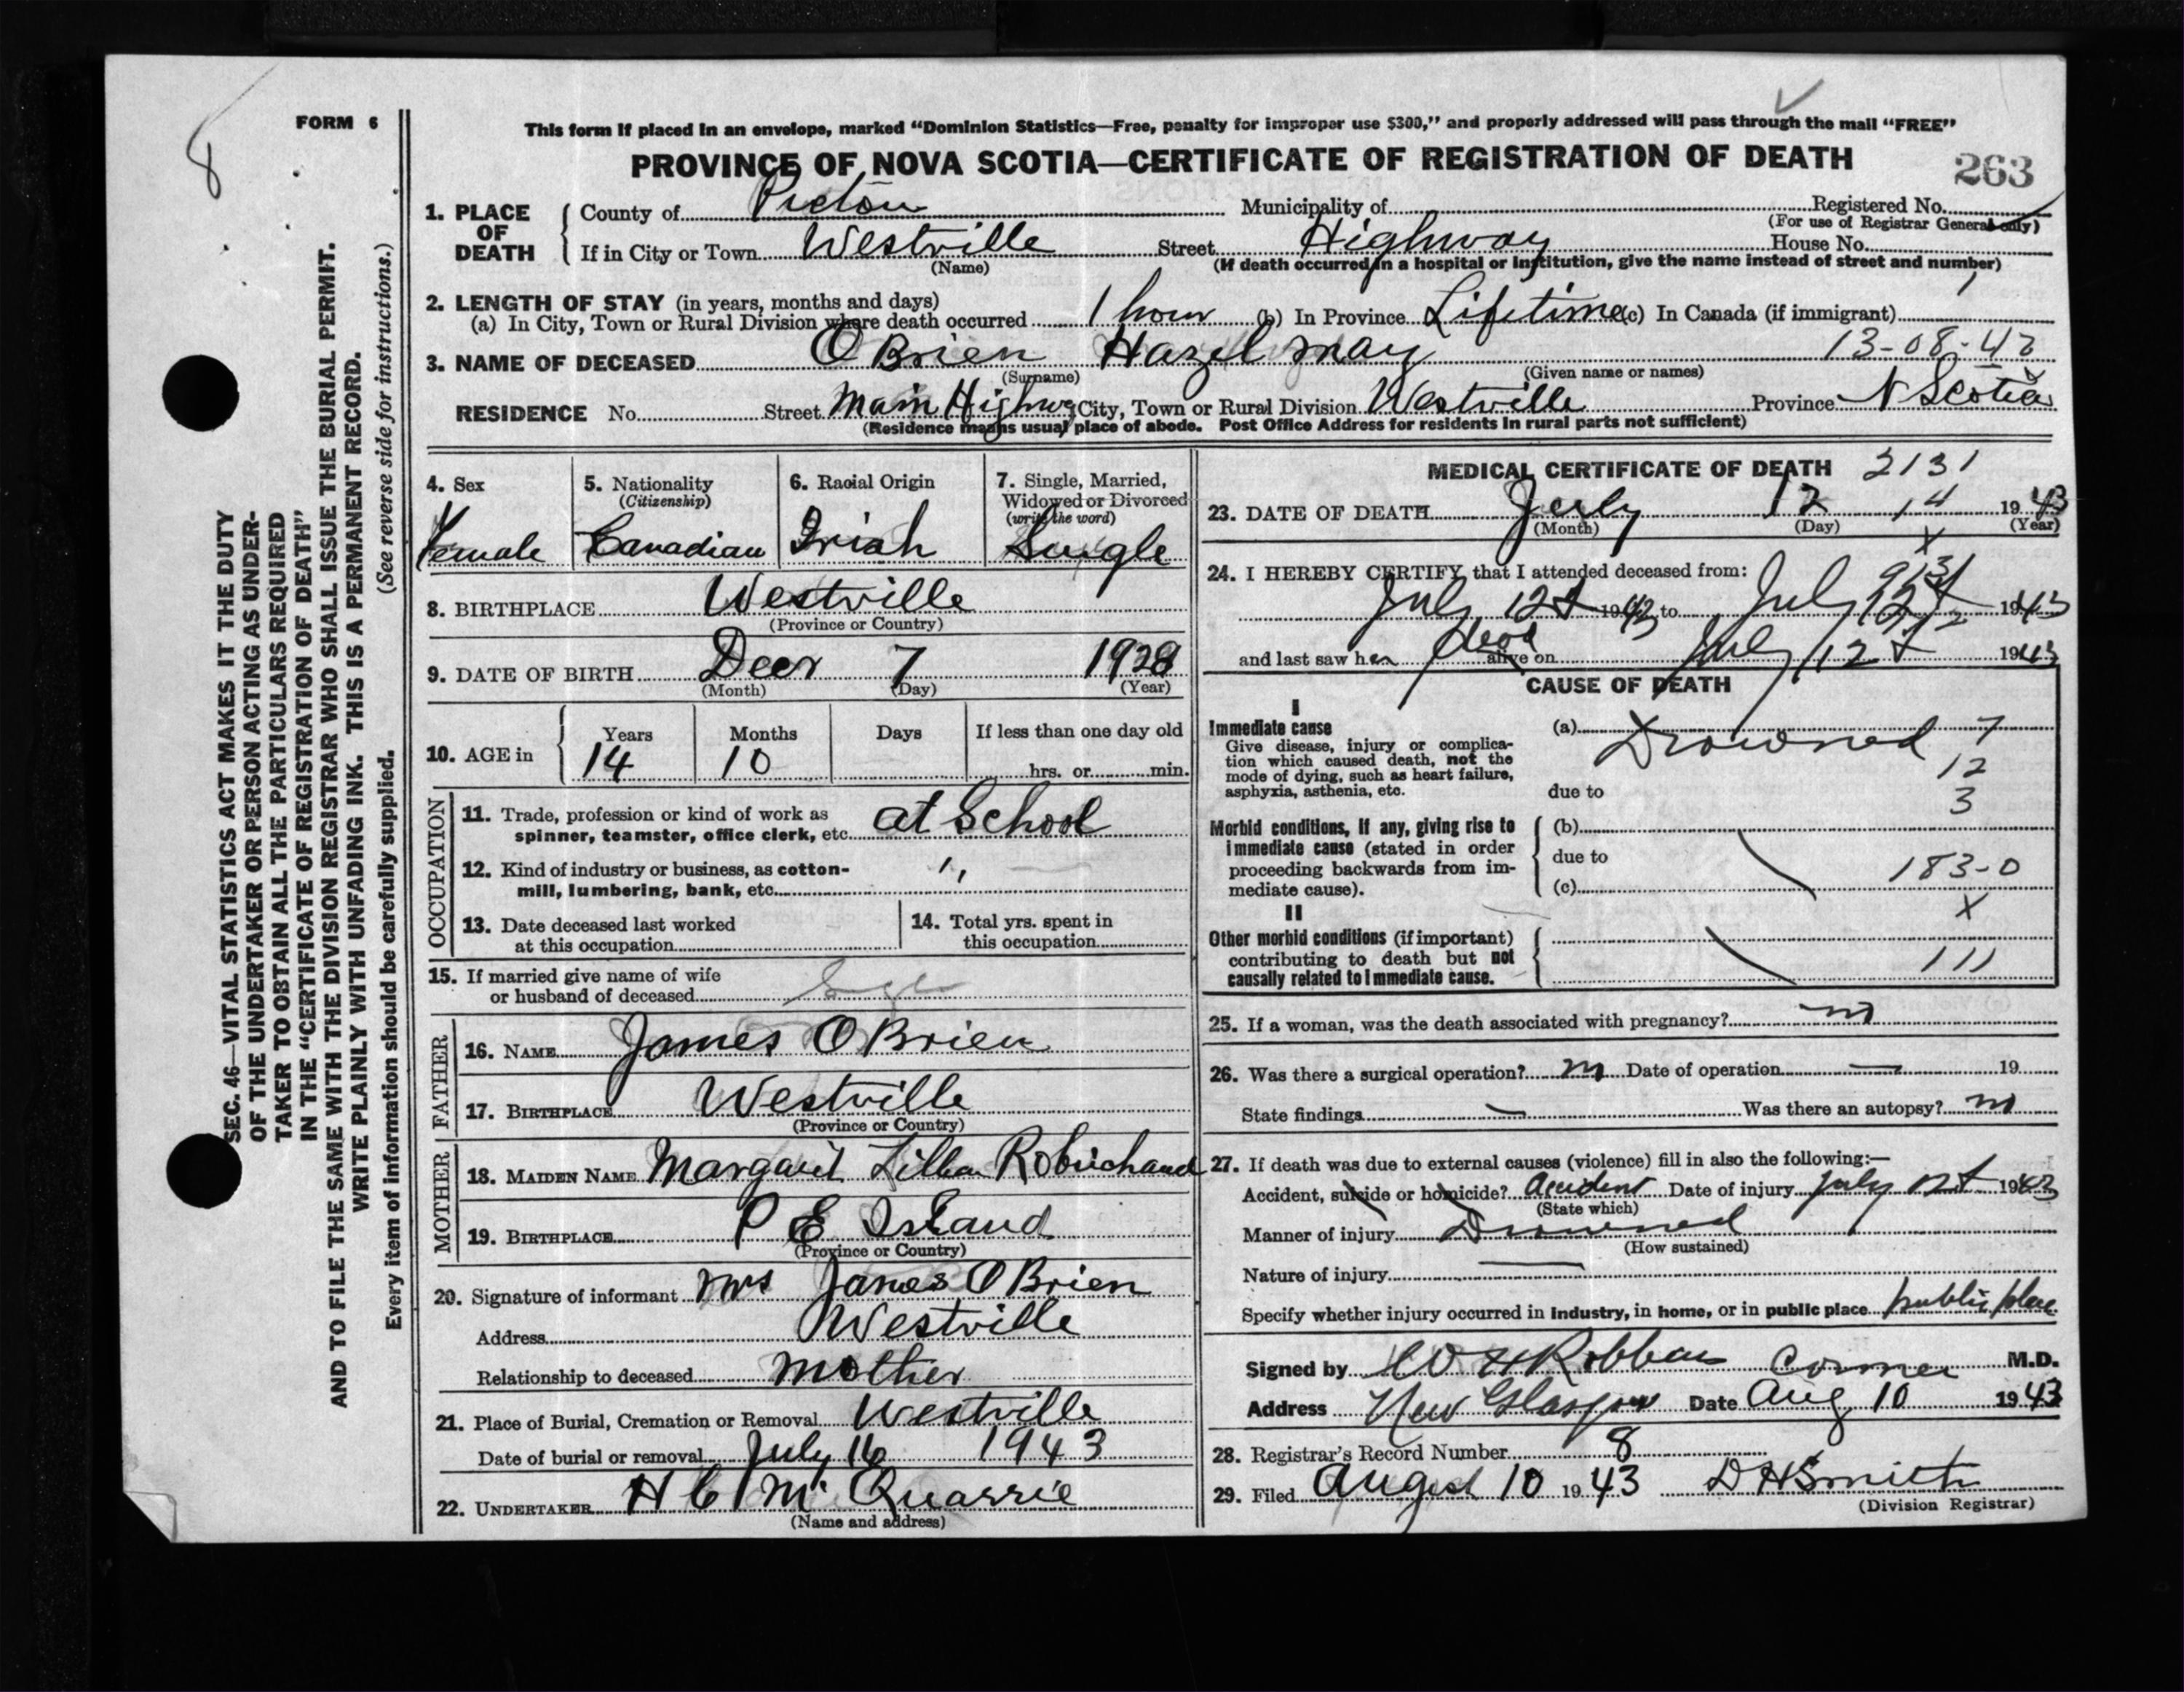 8
FORM 6
SEC. 46—VITAL STATISTICS ACT MAKES IT THE DUTY
OF THE UNDERTAKER OR PERSON ACTING AS UNDER-
TAKER TO OBTAIN ALL THE PARTICULARS REQUIRED
IN THE "CERTIFICATE OF REGISTRATION OF DEATH"
AND TO FILE THE SAME WITH THE DIVISION REGISTRAR WHO SHALL ISSUE THE BURIAL PERMIT.
WRITE PLAINLY WITH UNFADING INK. THIS IS A PERMANENT RECORD.
Every item of information should be carefully supplied. (See reverse side for instructions.)
This form if placed in an envelope, marked "Dominion Statistics—Free, penalty for improper use $300," and properly addressed will pass through the mail "FREE"
PROVINCE OF NOVA SCOTIA—CERTIFICATE OF REGISTRATION OF DEATH 263
1. PLACE OF DEATH County of Pictou Municipality of Registered No.
(For use of Registrar General only)
If in City or Town Westville Street Highway House No.
(Name) (If death occurred in a hospital or institution, give the name instead of street and number)
2. LENGTH OF STAY (in years, months and days)
(a) In City, Town or Rural Division where death occurred 1 hour (b) In Province Lifetime (c) In Canada (if immigrant)
3. NAME OF DECEASED O Brien Hazel May 13-08-42
(Surname) (Given name or names)
RESIDENCE No. Street Main Highway City, Town or Rural Division Westville Province N Scotia
(Residence means usual place of abode. Post Office Address for residents in rural parts not sufficient)
4. Sex Female
5. Nationality (Citizenship) Canadian
6. Racial Origin Irish
7. Single, Married, Widowed or Divorced (write the word) Single
8. BIRTHPLACE Westville
(Province or Country)
9. DATE OF BIRTH Decr 7 1928
(Month) (Day) (Year)
10. AGE in Years Months Days If less than one day old
14 10 hrs. or min.
OCCUPATION
11. Trade, profession or kind of work as
spinner, teamster, office clerk, etc. at School
12. Kind of industry or business, as cotton-
mill, lumbering, bank, etc. "
13. Date deceased last worked
at this occupation
14. Total yrs. spent in
this occupation
15. If married give name of wife
or husband of deceased
FATHER
16. NAME James O Brien
17. BIRTHPLACE Westville
(Province or Country)
MOTHER
18. MAIDEN NAME Margaret Lillian Robichaud
19. BIRTHPLACE P E Island
(Province or Country)
20. Signature of informant Mrs James O Brien
Address Westville
Relationship to deceased mother
21. Place of Burial, Cremation or Removal Westville
Date of burial or removal July 16 1943
22. UNDERTAKER H C McQuarrie
(Name and address)
MEDICAL CERTIFICATE OF DEATH 2131
23. DATE OF DEATH July 12 14 1943
(Month) (Day) (Year)
X
24. I HEREBY CERTIFY that I attended deceased from:
July 12 1943 to July 12 1943
and last saw her dead alive on July 12 1943
CAUSE OF DEATH
I
Immediate cause (a) Drowned 7
Give disease, injury or complica-
tion which caused death, not the
mode of dying, such as heart failure,
asphyxia, asthenia, etc. due to
12
3
Morbid conditions, if any, giving rise to
immediate cause (stated in order
proceeding backwards from im-
mediate cause).
(b)
due to
(c) 183-0
X
II
Other morbid conditions (if important)
contributing to death but not
causally related to immediate cause.
111
25. If a woman, was the death associated with pregnancy? no
26. Was there a surgical operation? no Date of operation — 19
State findings — Was there an autopsy? no
27. If death was due to external causes (violence) fill in also the following:—
Accident, suicide or homicide? Accident Date of injury July 12 1943
(State which)
Manner of injury Drowned
(How sustained)
Nature of injury —
Specify whether injury occurred in industry, in home, or in public place public place
Signed by Coroner M.D.
Address New Glasgow Date Aug 10 1943
28. Registrar's Record Number 8
29. Filed August 10 1943 D H Smith
(Division Registrar)